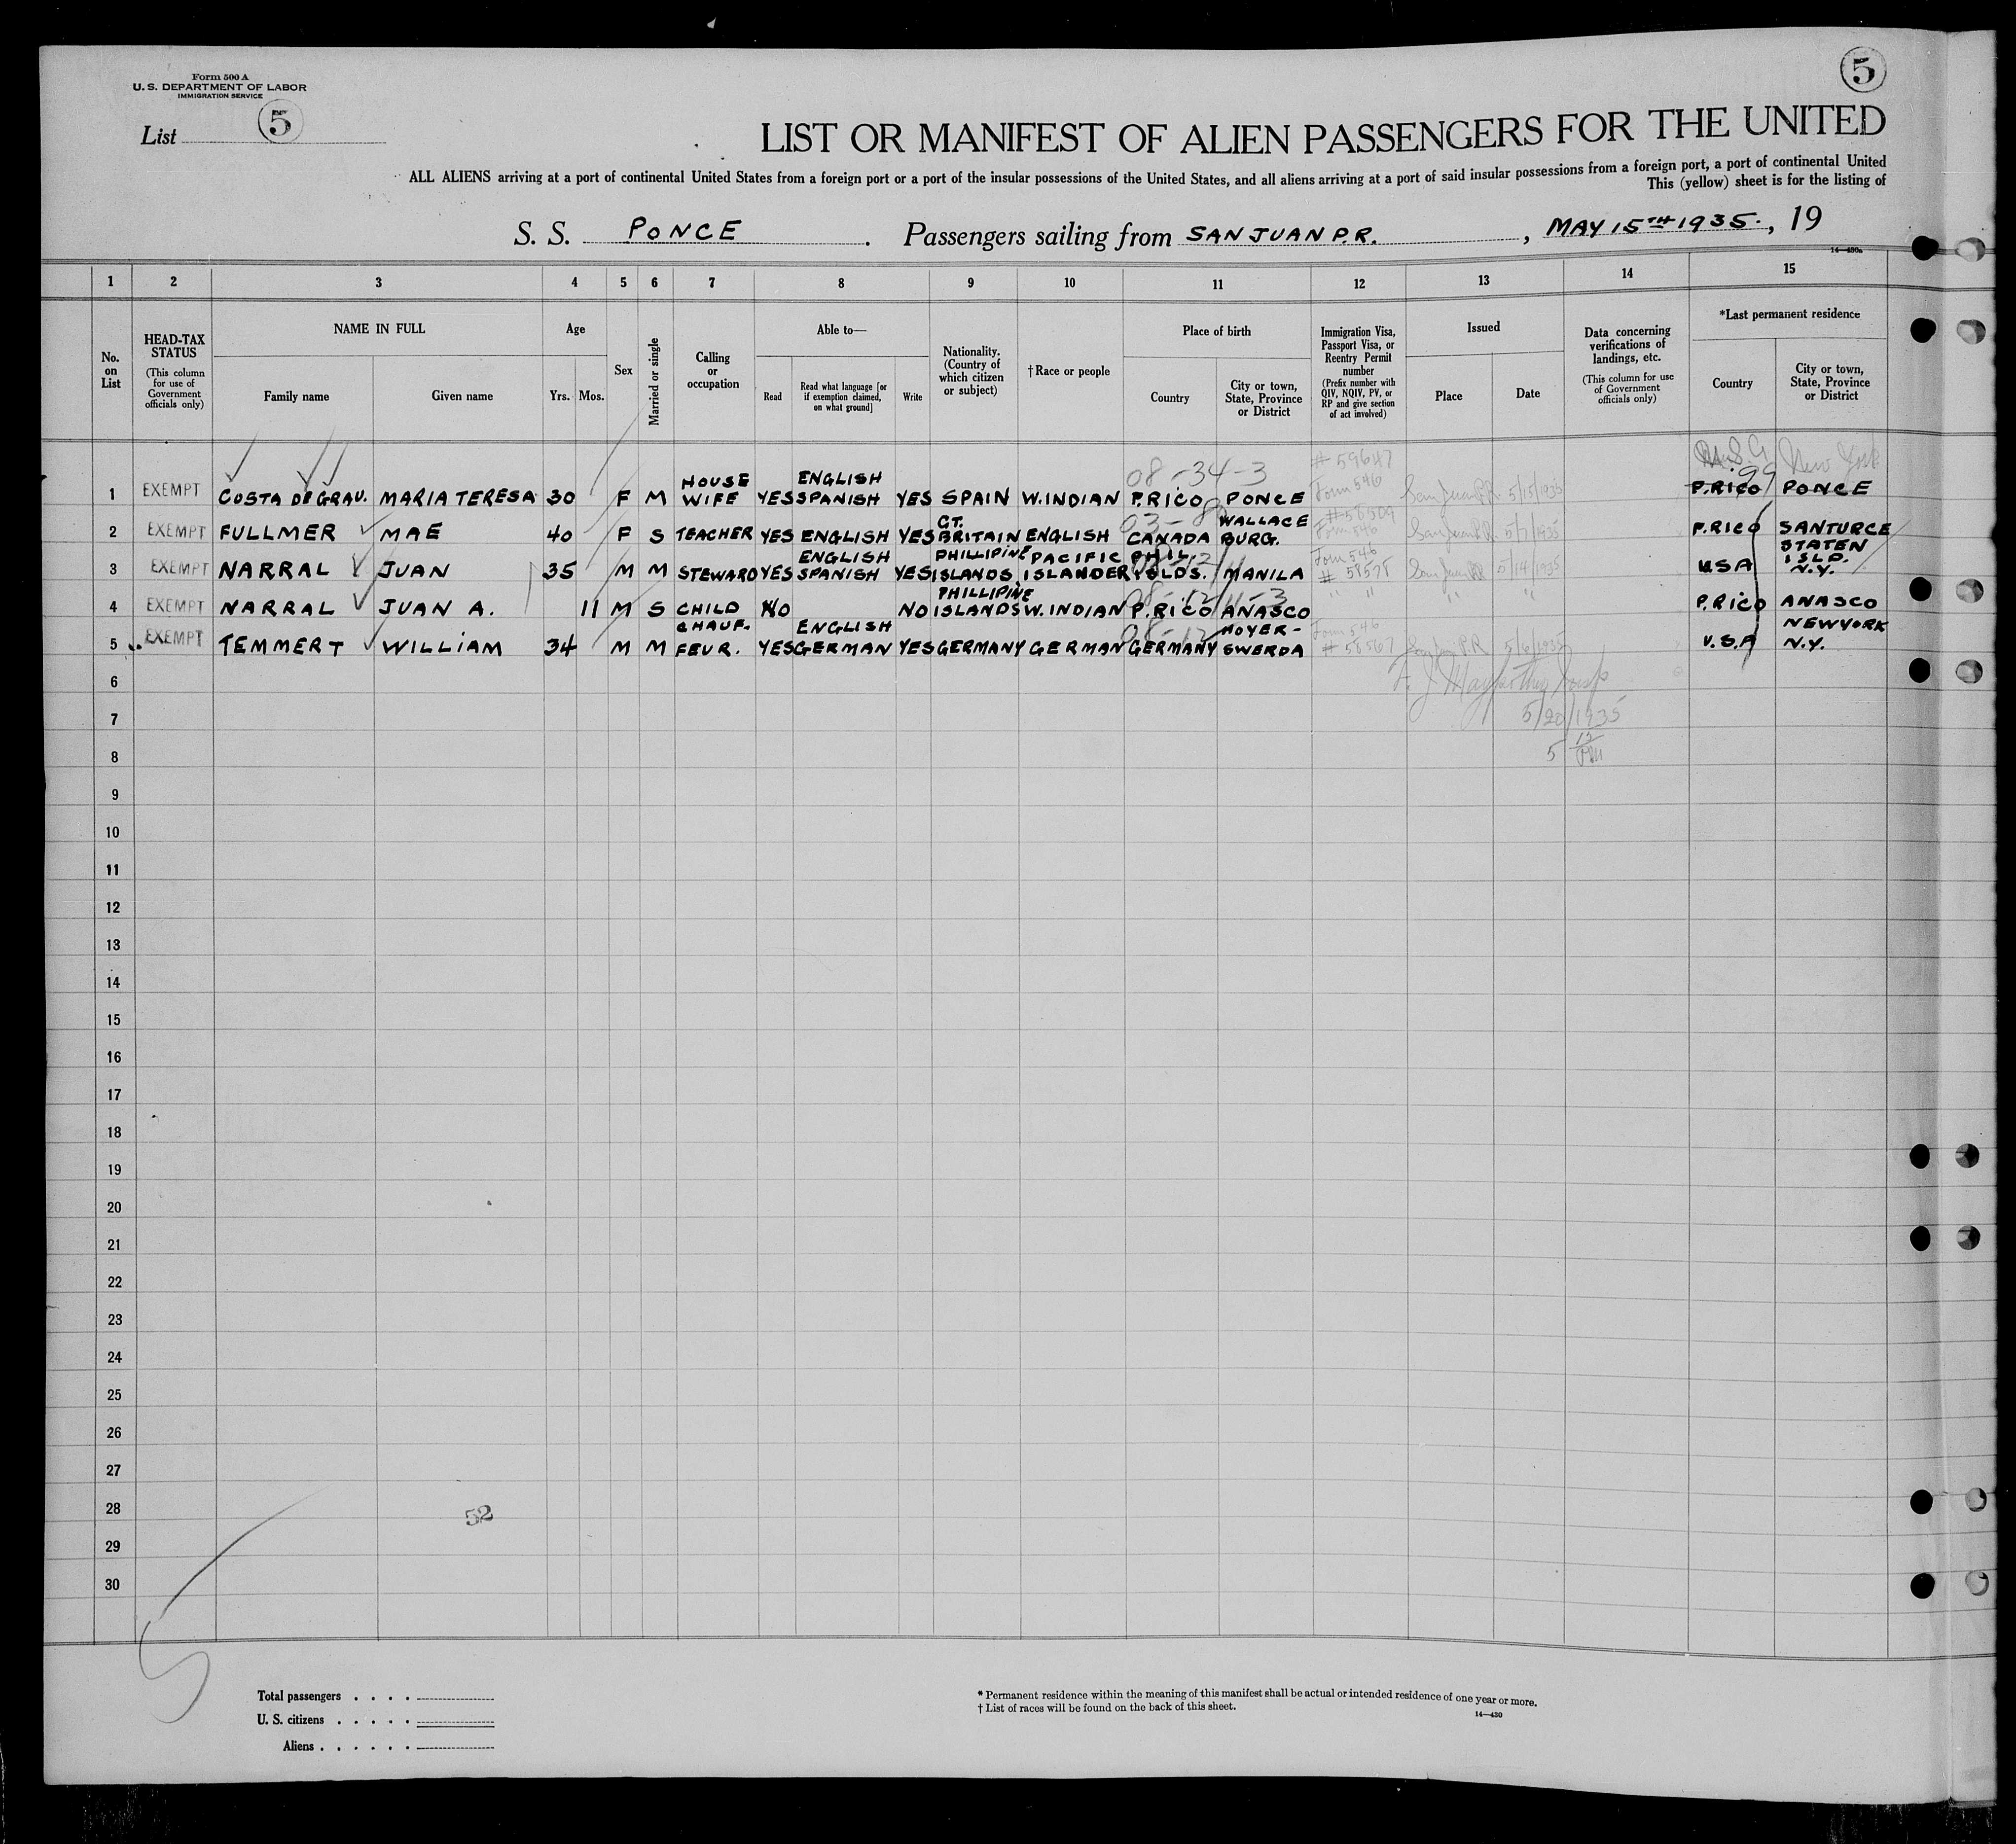 Form 500 A
U. S. DEPARTMENT OF LABOR
IMMIGRATION SERVICE
List 5
5
LIST OR MANIFEST OF ALIEN PASSENGERS FOR THE UNITED
ALL ALIENS arriving at a port of continental United States from a foreign port or a port of the insular possessions of the United States, and all aliens arriving at a port of said insular possessions from a foreign port, a port of continental United
This (yellow) sheet is for the listing of
S. S. PONCE . Passengers sailing from SAN JUAN P.R. , MAY 15TH 1935. , 19
14—430a
1 2 3 4 5 6 7 8 9 10 11 12 13 14 15
No. on List
HEAD-TAX STATUS
(This column for use of Government officials only)
NAME IN FULL
Family name
Given name
Age
Yrs. Mos.
Sex
Married or single
Calling or occupation
Able to—
Read
Read what language [or if exemption claimed, on what ground]
Write
Nationality. (Country of which citizen or subject)
†Race or people
Place of birth
Country
City or town, State, Province or District
Immigration Visa, Passport Visa, or Reentry Permit number
(Prefix number with QIV, NQIV, PV, or RP and give section of act involved)
Issued
Place
Date
Data concerning verifications of landings, etc.
(This column for use of Government officials only)
*Last permanent residence
Country
City or town, State, Province or District
U.S.A New York
08-34-3 99
1 EXEMPT COSTA DE GRAU. MARIA TERESA 30 F M HOUSE WIFE YES ENGLISH SPANISH YES SPAIN W.INDIAN P.RICO PONCE # 59647 Form 546 San Juan P.R. 5/15/1935 P.RICO PONCE
2 EXEMPT FULLMER MAE 40 F S TEACHER YES ENGLISH YES GT. BRITAIN ENGLISH CANADA WALLACE BURG. #58509 Form 546 San Juan P.R. 5/7/1935 P.RICO SANTURCE
3 EXEMPT NARRAL JUAN 35 M M STEWARD YES ENGLISH SPANISH YES PHILLIPINE ISLANDS. PACIFIC ISLANDER PHIL. ISLDS. MANILA Form 546 # 58578 San Juan P.R. 5/14/1935 USA STATEN ISLD. N.Y.
4 EXEMPT NARRAL JUAN A. 11 M S CHILD NO NO PHILLIPINE ISLANDS W.INDIAN P.RICO ANASCO " " " " P.RICO ANASCO
5 EXEMPT TEMMERT WILLIAM 34 M M CHAUF- FEUR. YES ENGLISH GERMAN YES GERMANY GERMAN GERMANY HOYER- SWERDA Form 546 # 58567 San Juan P.R 5/6/1935 U.S.A NEWYORK N.Y.
6
7 5/20/1935
8 5 12 PM
9
10
11
12
13
14
15
16
17
18
19
20
21
22
23
24
25
26
27
28 52
29
30
5
Total passengers . . . .
U. S. citizens . . . . .
Aliens . . . . . .
* Permanent residence within the meaning of this manifest shall be actual or intended residence of one year or more.
† List of races will be found on the back of this sheet.
14—430